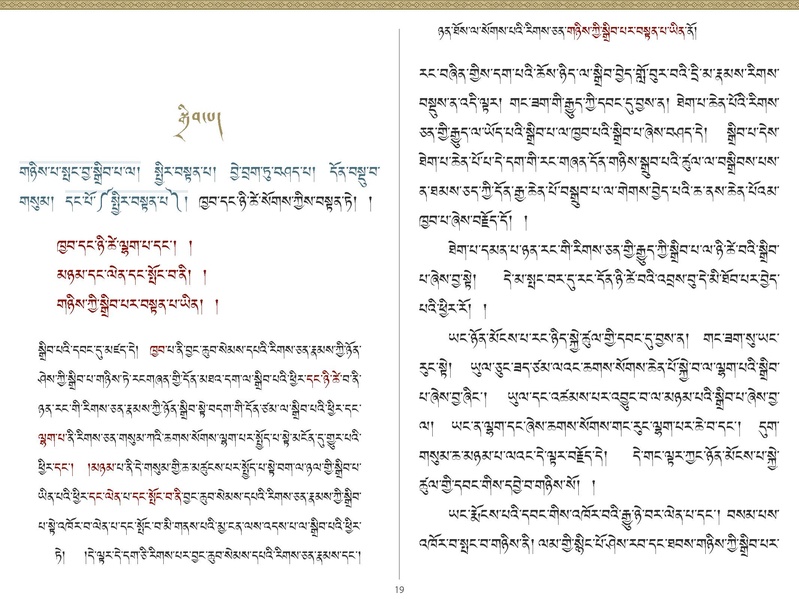 སྒྲིབ།
གཉིས་པ་སྤང་བྱ་སྒྲིབ་པ་ལ། སྤྱིར་བསྟན་པ། བྱེ་བྲག་ཏུ་བཤད་པ། དོན་བསྡུ་བ་
གསུམ། དང་པོ་༼སྤྱིར་བསྟན་པ་༽། ཁྱབ་དང་ཉི་ཚེ་སོགས་ཀྱིས་བསྟན་ཏེ། །
ཁྱབ་དང་ཉི་ཚེ་ལྷག་པ་དང་། །
མཉམ་དང་ལེན་དང་སྤོང་བ་ནི། །
གཉིས་ཀྱི་སྒྲིབ་པར་བསྟན་པ་ཡིན། །
སྒྲིབ་པའི་དབང་དུ་མཛད་དེ། ཁྱབ་པ་ནི་བྱང་ཆུབ་སེམས་དཔའི་རིགས་ཅན་རྣམས་ཀྱི་ཉོན་
ཤེས་ཀྱི་སྒྲིབ་པ་གཉིས་ཏེ་རངགཞན་གྱི་དོན་མཐའ་དག་ལ་སྒྲིབ་པའི་ཕྱིར་དང་ཉི་ཚེ་བ་ནི་
ཉན་རང་གི་རིགས་ཅན་རྣམས་ཀྱི་ཉོན་སྒྲིབ་སྟེ་བདག་གི་དོན་ཙམ་ལ་སྒྲིབ་པའི་ཕྱིར་དང་
ལྷག་པ་ནི་རིགས་ཅན་གསུམ་ཀའི་ཆགས་སོགས་ལྷག་པར་སྤྱོད་པ་སྟེ་མངོན་དུ་གྱུར་པའི་
ཕྱིར་དང་། །མཉམ་པ་ནི་དེ་གསུམ་གྱི་ཆ་མཚུངས་པར་སྤྱོད་པ་སྟེ་བག་ལ་ཉལ་གྱི་སྒྲིབ་པ་
ཡིན་པའི་ཕྱིར་དང་ལེན་པ་དང་སྤོང་བ་ནི་བྱང་ཆུབ་སེམས་དཔའི་རིགས་ཅན་རྣམས་ཀྱི་སྒྲིབ་
པ་སྟེ་འཁོར་བ་ལེན་པ་དང་སྤོང་བ་མི་གནས་པའི་མྱ་ངན་ལས་འདས་པ་ལ་སྒྲིབ་པའི་ཕྱིར་
ཏེ། །དེ་ལྟར་དེ་དག་ཅི་རིགས་པར་བྱང་ཆུབ་སེམས་དཔའི་རིགས་ཅན་རྣམས་དང་།
ཉན་ཐོས་ལ་སོགས་པའི་རིགས་ཅན་གཉིས་ཀྱི་སྒྲིབ་པར་བསྟན་པ་ཡིན་ནོ།
རང་བཞིན་གྱིས་དག་པའི་ཆོས་ཉིད་ལ་སྒྲིབ་བྱེད་གློ་བུར་བའི་དྲི་མ་རྣམས་རིགས་
བསྡུས་ན་འདི་ལྟར། གང་ཟག་གི་རྒྱུད་ཀྱི་དབང་དུ་བྱས་ན། ཐེག་པ་ཆེན་པོའི་རིགས་
ཅན་གྱི་རྒྱུད་ལ་ཡོད་པའི་སྒྲིབ་པ་ལ་ཁྱབ་པའི་སྒྲིབ་པ་ཞེས་བཤད་དེ། སྒྲིབ་པ་དེས་
ཐེག་པ་ཆེན་པོ་པ་དེ་དག་གི་རང་གཞན་དོན་གཉིས་སྒྲུབ་པའི་ཚུལ་ལ་བསྒྲིབས་པས་
ན་ཐམས་ཅད་ཀྱི་དོན་རྒྱ་ཆེན་པོ་བསྒྲུབ་པ་ལ་གེགས་བྱེད་པའི་ཆ་ནས་ཆེན་པོའམ་
ཁྱབ་པ་ཞེས་བརྗོད་དོ། །
ཐེག་པ་དམན་པ་ཉན་རང་གི་རིགས་ཅན་གྱི་རྒྱུད་ཀྱི་སྒྲིབ་པ་ལ་ཉི་ཚེ་བའི་སྒྲིབ་
པ་ཞེས་བྱ་སྟེ། དེ་མ་སྤང་བར་དུ་རང་དོན་ཉི་ཚེ་བའི་འབྲས་བུ་དེ་མི་ཐོབ་པར་བྱེད་
པའི་ཕྱིར་རོ། །
ཡང་ཉོན་མོངས་པ་རང་ཉིད་སྐྱེ་ཚུལ་གྱི་དབང་དུ་བྱས་ན། གང་ཟག་སུ་ཡང་
རུང་སྟེ། ཡུལ་ཅུང་ཟད་ཙམ་ལའང་ཆགས་སོགས་ཆེན་པོ་སྐྱེ་བ་ལ་ལྷག་པའི་སྒྲིབ་
པ་ཞེས་བྱ་ཞིང་། ཡུལ་དང་འཚམས་པར་འབྱུང་བ་ལ་མཉམ་པའི་སྒྲིབ་པ་ཞེས་བྱ་
ལ། ཡང་ན་ལྷག་དང་ཞེས་ཆགས་སོགས་གང་རུང་ལྷག་པར་ཆེ་བ་དང་། དུག་
གསུམ་ཆ་མཉམ་པ་ལའང་དེ་ལྟར་བརྗོད་དེ། དེ་གང་ལྟར་ཀྱང་ཉོན་མོངས་པ་སྐྱེ་
ཚུལ་གྱི་དབང་གིས་དབྱེ་བ་གཉིས་སོ། །
ཡང་རྨོངས་པའི་དབང་གིས་འཁོར་བའི་རྒྱུ་ཉེ་བར་ལེན་པ་དང་། བསམ་པས་
འཁོར་བ་སྤང་བ་གཉིས་ནི། ལམ་གྱི་སྙིང་པོ་ཤེས་རབ་དང་ཐབས་གཉིས་ཀྱི་སྒྲིབ་པར་
19